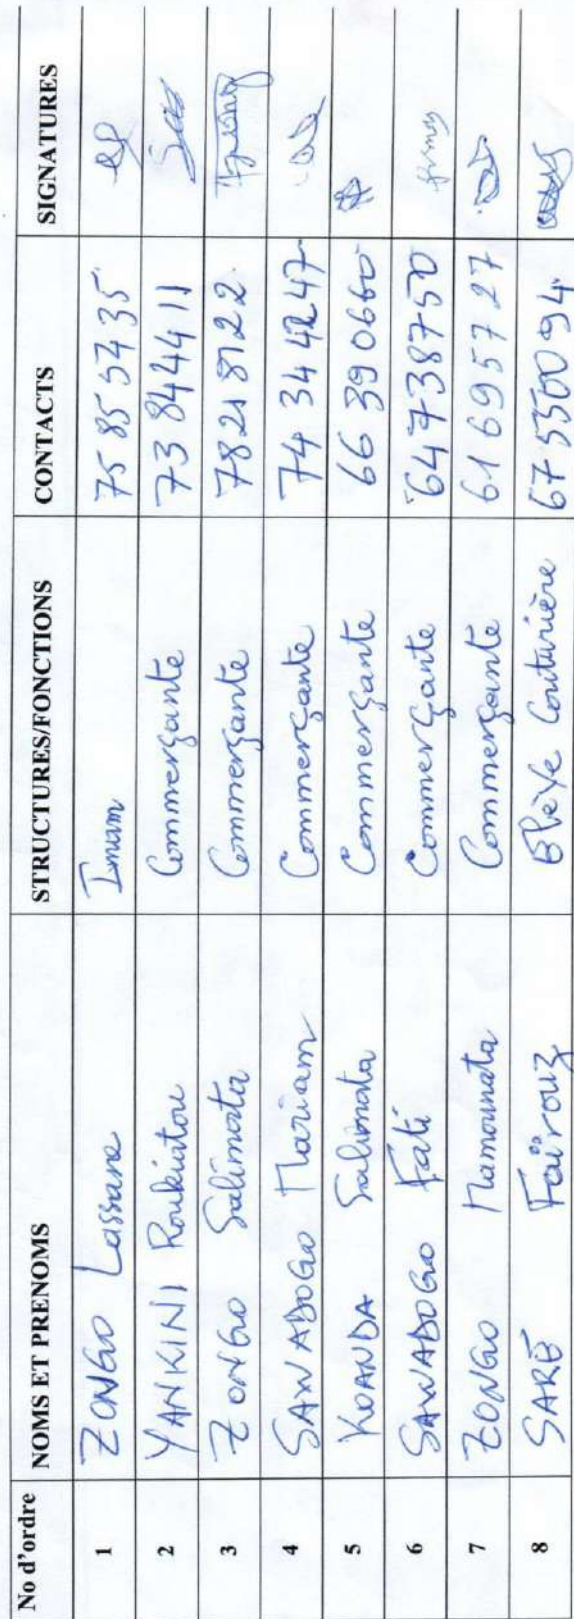 No d'ordre NOMS ET PRENOMS STRUCTURES/FONCTIONS CONTACTS SIGNATURES
1 ZONGO Lassane Imam 75 85 54 35
2 YANKINI Roukiatou Commerçante 73 84 44 11
3 ZONGO Salimata Commerçante 78 21 81 22
4 SAWADOGO Mariam Commerçante 74 34 42 47
5 KOANDA Salimata Commerçante 66 39 06 60
6 SAWADOGO Fati Commerçante 64 73 87 50
7 ZONGO Mamounata Commerçante 61 69 57 27
8 SARÉ Faïrouz Elève Couturière 67 55 00 94